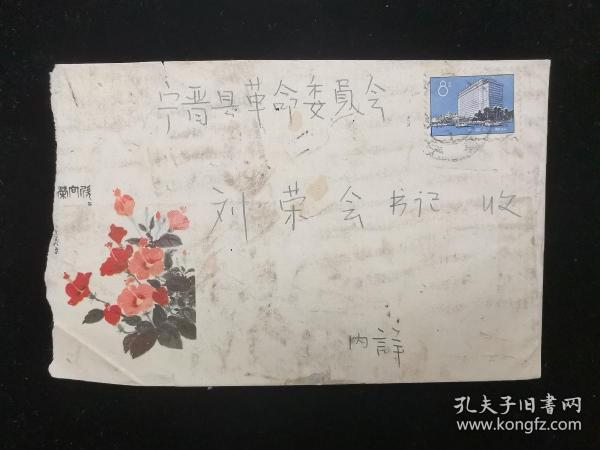 宁晋县革命委員会
8分
刘荣会书记 收
内詳
孔夫子旧書网
www.kongfz.com